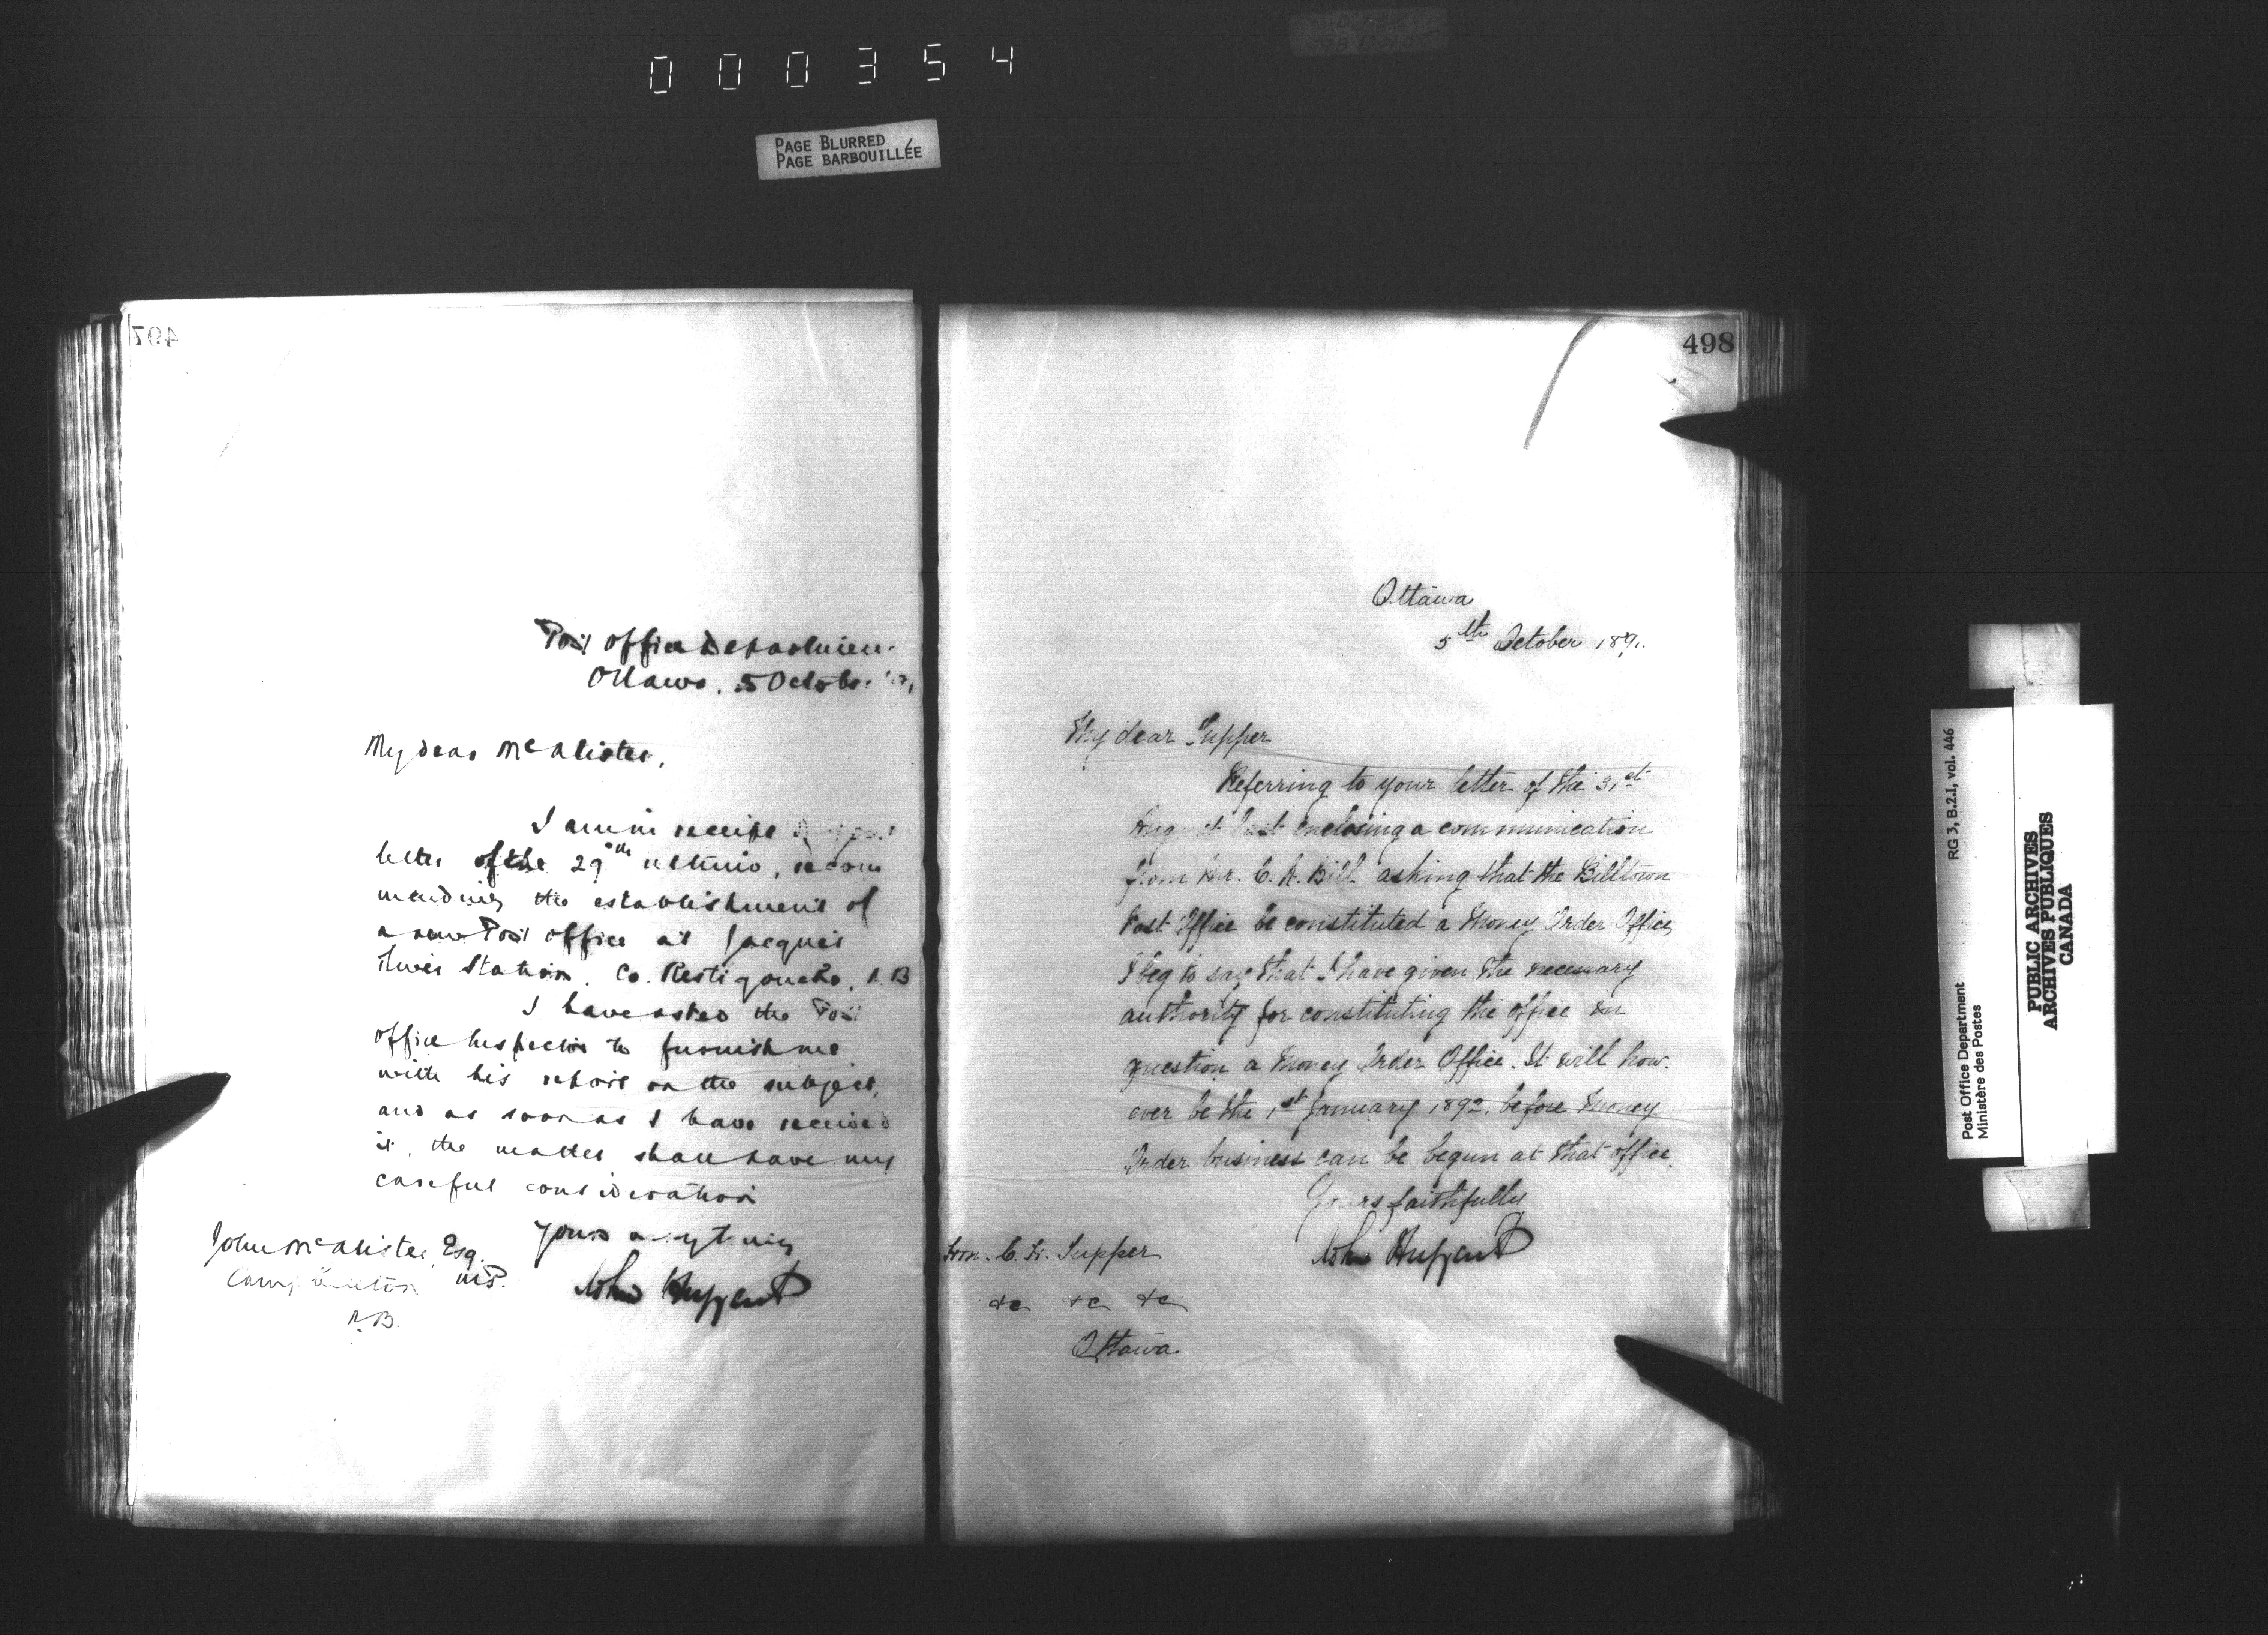 000354
PAGE BLURRED
PAGE BARBOUILLÉE
497
Post Office Departmen
Ottawa, 5 October
My dear McAlister,
I am in receipt of your
letter of the 29th ultimo, recom
mending the establishment of
a new Post Office at Jacquet
River Station, Co. Restigouche, N.B
I have asked the Post
Office Inspector to furnish me
with his report on the subject,
and as soon as I have received
it, the matter shall have my
careful consideration
Yours very truly
John Haggart
John McAlister, Esq. M.P.
Campbellton
N.B.
498
Ottawa
5th October 1891.
My dear Tupper
Referring to your letter of the 31st
August last enclosing a communication
from Mr. C. R. Bill asking that the Billtown
Post Office be constituted a Money Order Office,
I beg to say that I have given the necessary
authority for constituting the office in
question a Money Order Office. It will how-
ever be the 1st January 1892, before Money
Order business can be begun at that office.
Yours faithfully
John Haggart
Hon. C. H. Tupper
&c &c &c
Ottawa
RG 3, B.2.1, vol. 446
Post Office Department
Ministère des Postes
PUBLIC ARCHIVES
ARCHIVES PUBLIQUES
CANADA